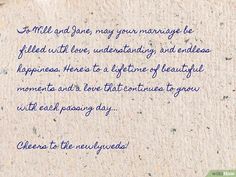 To Will and Jane, may your marriage be
filled with love, understanding, and endless
happiness. Here's to a lifetime of beautiful
moments and a love that continues to grow
with each passing day...
Cheers to the newlyweds!
wikiHow